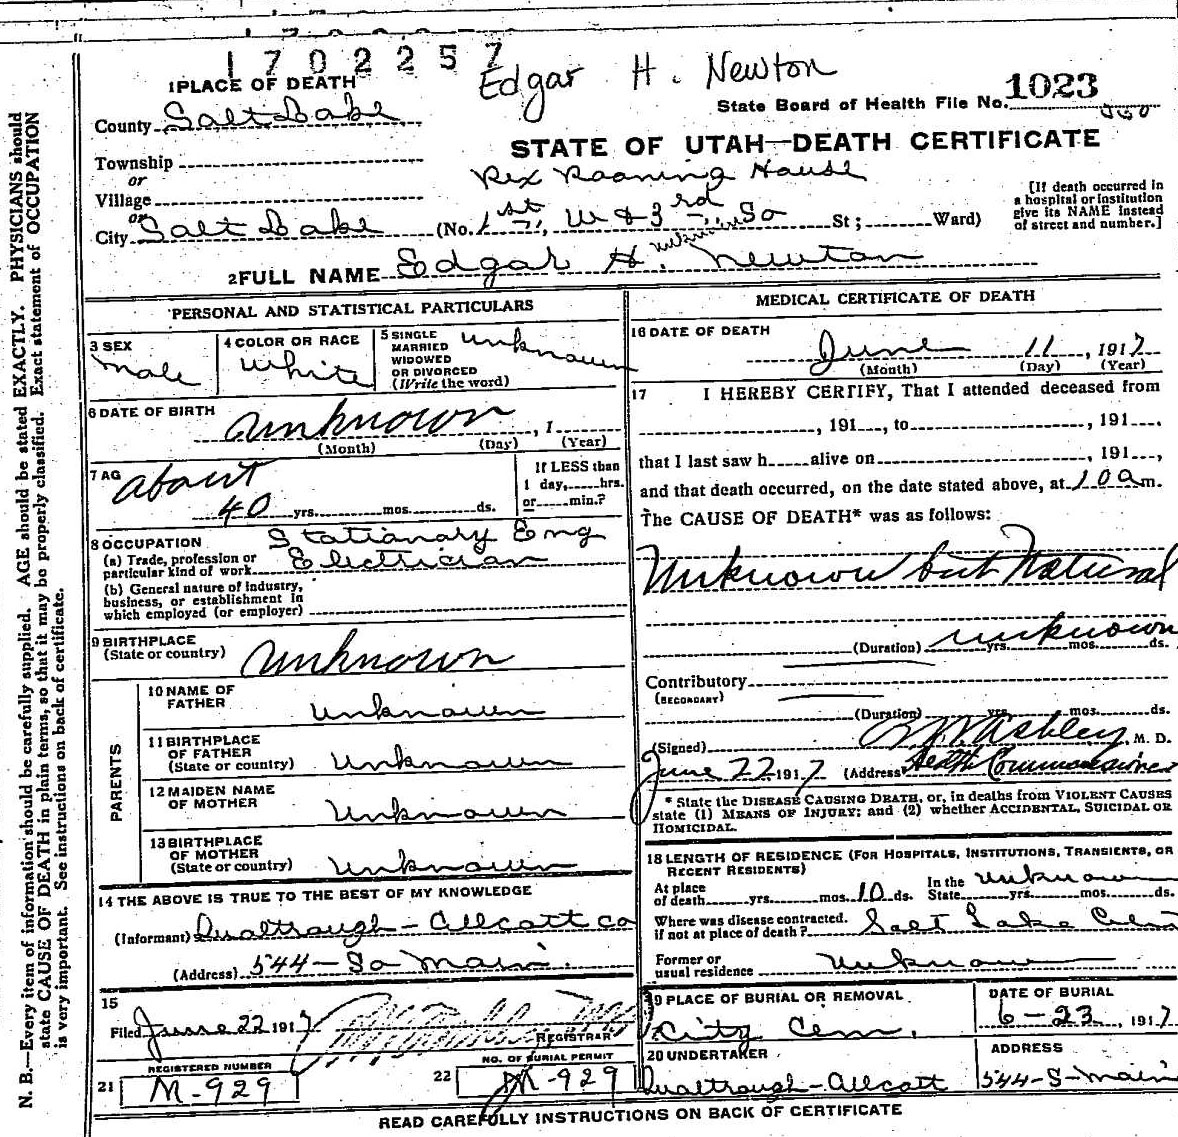 1702257
Edgar H. Newton
1 PLACE OF DEATH
State Board of Health File No. 1023
County Salt Lake
STATE OF UTAH—DEATH CERTIFICATE
Township
or
Village
or
City Salt Lake
Rex Rooming House
(No. 1st W & 3rd So St; Ward)
[If death occurred in
a hospital or institution
give its NAME instead
of street and number.]
2 FULL NAME Edgar H. unknown Newton
PERSONAL AND STATISTICAL PARTICULARS
3 SEX
Male
4 COLOR OR RACE
White
5 SINGLE
MARRIED
WIDOWED
OR DIVORCED
(Write the word)
unknown
6 DATE OF BIRTH
unknown , 1
(Month) (Day) (Year)
7 AG
about
40 yrs. mos. ds.
If LESS than
1 day, hrs.
or min.?
8 OCCUPATION
(a) Trade, profession or
particular kind of work
Stationary Eng
Electrician
(b) General nature of industry,
business, or establishment in
which employed (or employer)
9 BIRTHPLACE
(State or country) unknown
PARENTS
10 NAME OF
FATHER unknown
11 BIRTHPLACE
OF FATHER
(State or country) unknown
12 MAIDEN NAME
OF MOTHER unknown
13 BIRTHPLACE
OF MOTHER
(State or country) unknown
14 THE ABOVE IS TRUE TO THE BEST OF MY KNOWLEDGE
(Informant) Qualtrough-Allcott Co
(Address) 544-So Main.
15
Filed June 22 1917
REGISTRAR
REGISTERED NUMBER
21 M-929
NO. OF BURIAL PERMIT
22 M-929
MEDICAL CERTIFICATE OF DEATH
16 DATE OF DEATH
June 11, 1917
(Month) (Day) (Year)
17 I HEREBY CERTIFY, That I attended deceased from
, 191 , to , 191 .
that I last saw h alive on , 191 ,
and that death occurred, on the date stated above, at 10 a m.
The CAUSE OF DEATH* was as follows:
Unknown but Natural
(Duration) unknown yrs. mos. ds.
Contributory
(SECONDARY)
(Duration) yrs. mos. ds.
(Signed) Ashley, M. D.
June 22 1917 (Address) Health Commissioner
* State the DISEASE CAUSING DEATH, or, in deaths from VIOLENT CAUSES
state (1) MEANS OF INJURY; and (2) whether ACCIDENTAL, SUICIDAL OR
HOMICIDAL.
18 LENGTH OF RESIDENCE (FOR HOSPITALS, INSTITUTIONS, TRANSIENTS, OR
RECENT RESIDENTS)
At place
of death yrs. mos. 10 ds.
In the
State unknown yrs. mos. ds.
Where was disease contracted.
if not at place of death? Salt Lake City
Former or
usual residence unknown
19 PLACE OF BURIAL OR REMOVAL
City Cem.
DATE OF BURIAL
6-23, 1917
20 UNDERTAKER
Qualtrough-Allcott
ADDRESS
544-S-Main
READ CAREFULLY INSTRUCTIONS ON BACK OF CERTIFICATE
N. B.—Every item of information should be carefully supplied. AGE should be stated EXACTLY. PHYSICIANS should
state CAUSE OF DEATH in plain terms, so that it may be properly classified. Exact statement of OCCUPATION
is very important. See instructions on back of certificate.